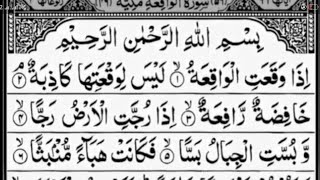 سُوْرَةُ الْوَاقِعَةِ مَكِّيَّةٌ
بِسْمِ اللّٰهِ الرَّحْمٰنِ الرَّحِيْمِ
اِذَا وَقَعَتِ الْوَاقِعَةُ ۝۱ لَيْسَ لِوَقْعَتِهَا كَاذِبَةٌ ۝۲
خَافِضَةٌ رَّافِعَةٌ ۝۳ اِذَا رُجَّتِ الْاَرْضُ رَجًّا ۝۴
وَّ بُسَّتِ الْجِبَالُ بَسًّا ۝۵ فَكَانَتْ هَبَآءً مُّنْۢبَثًّا ۝۶